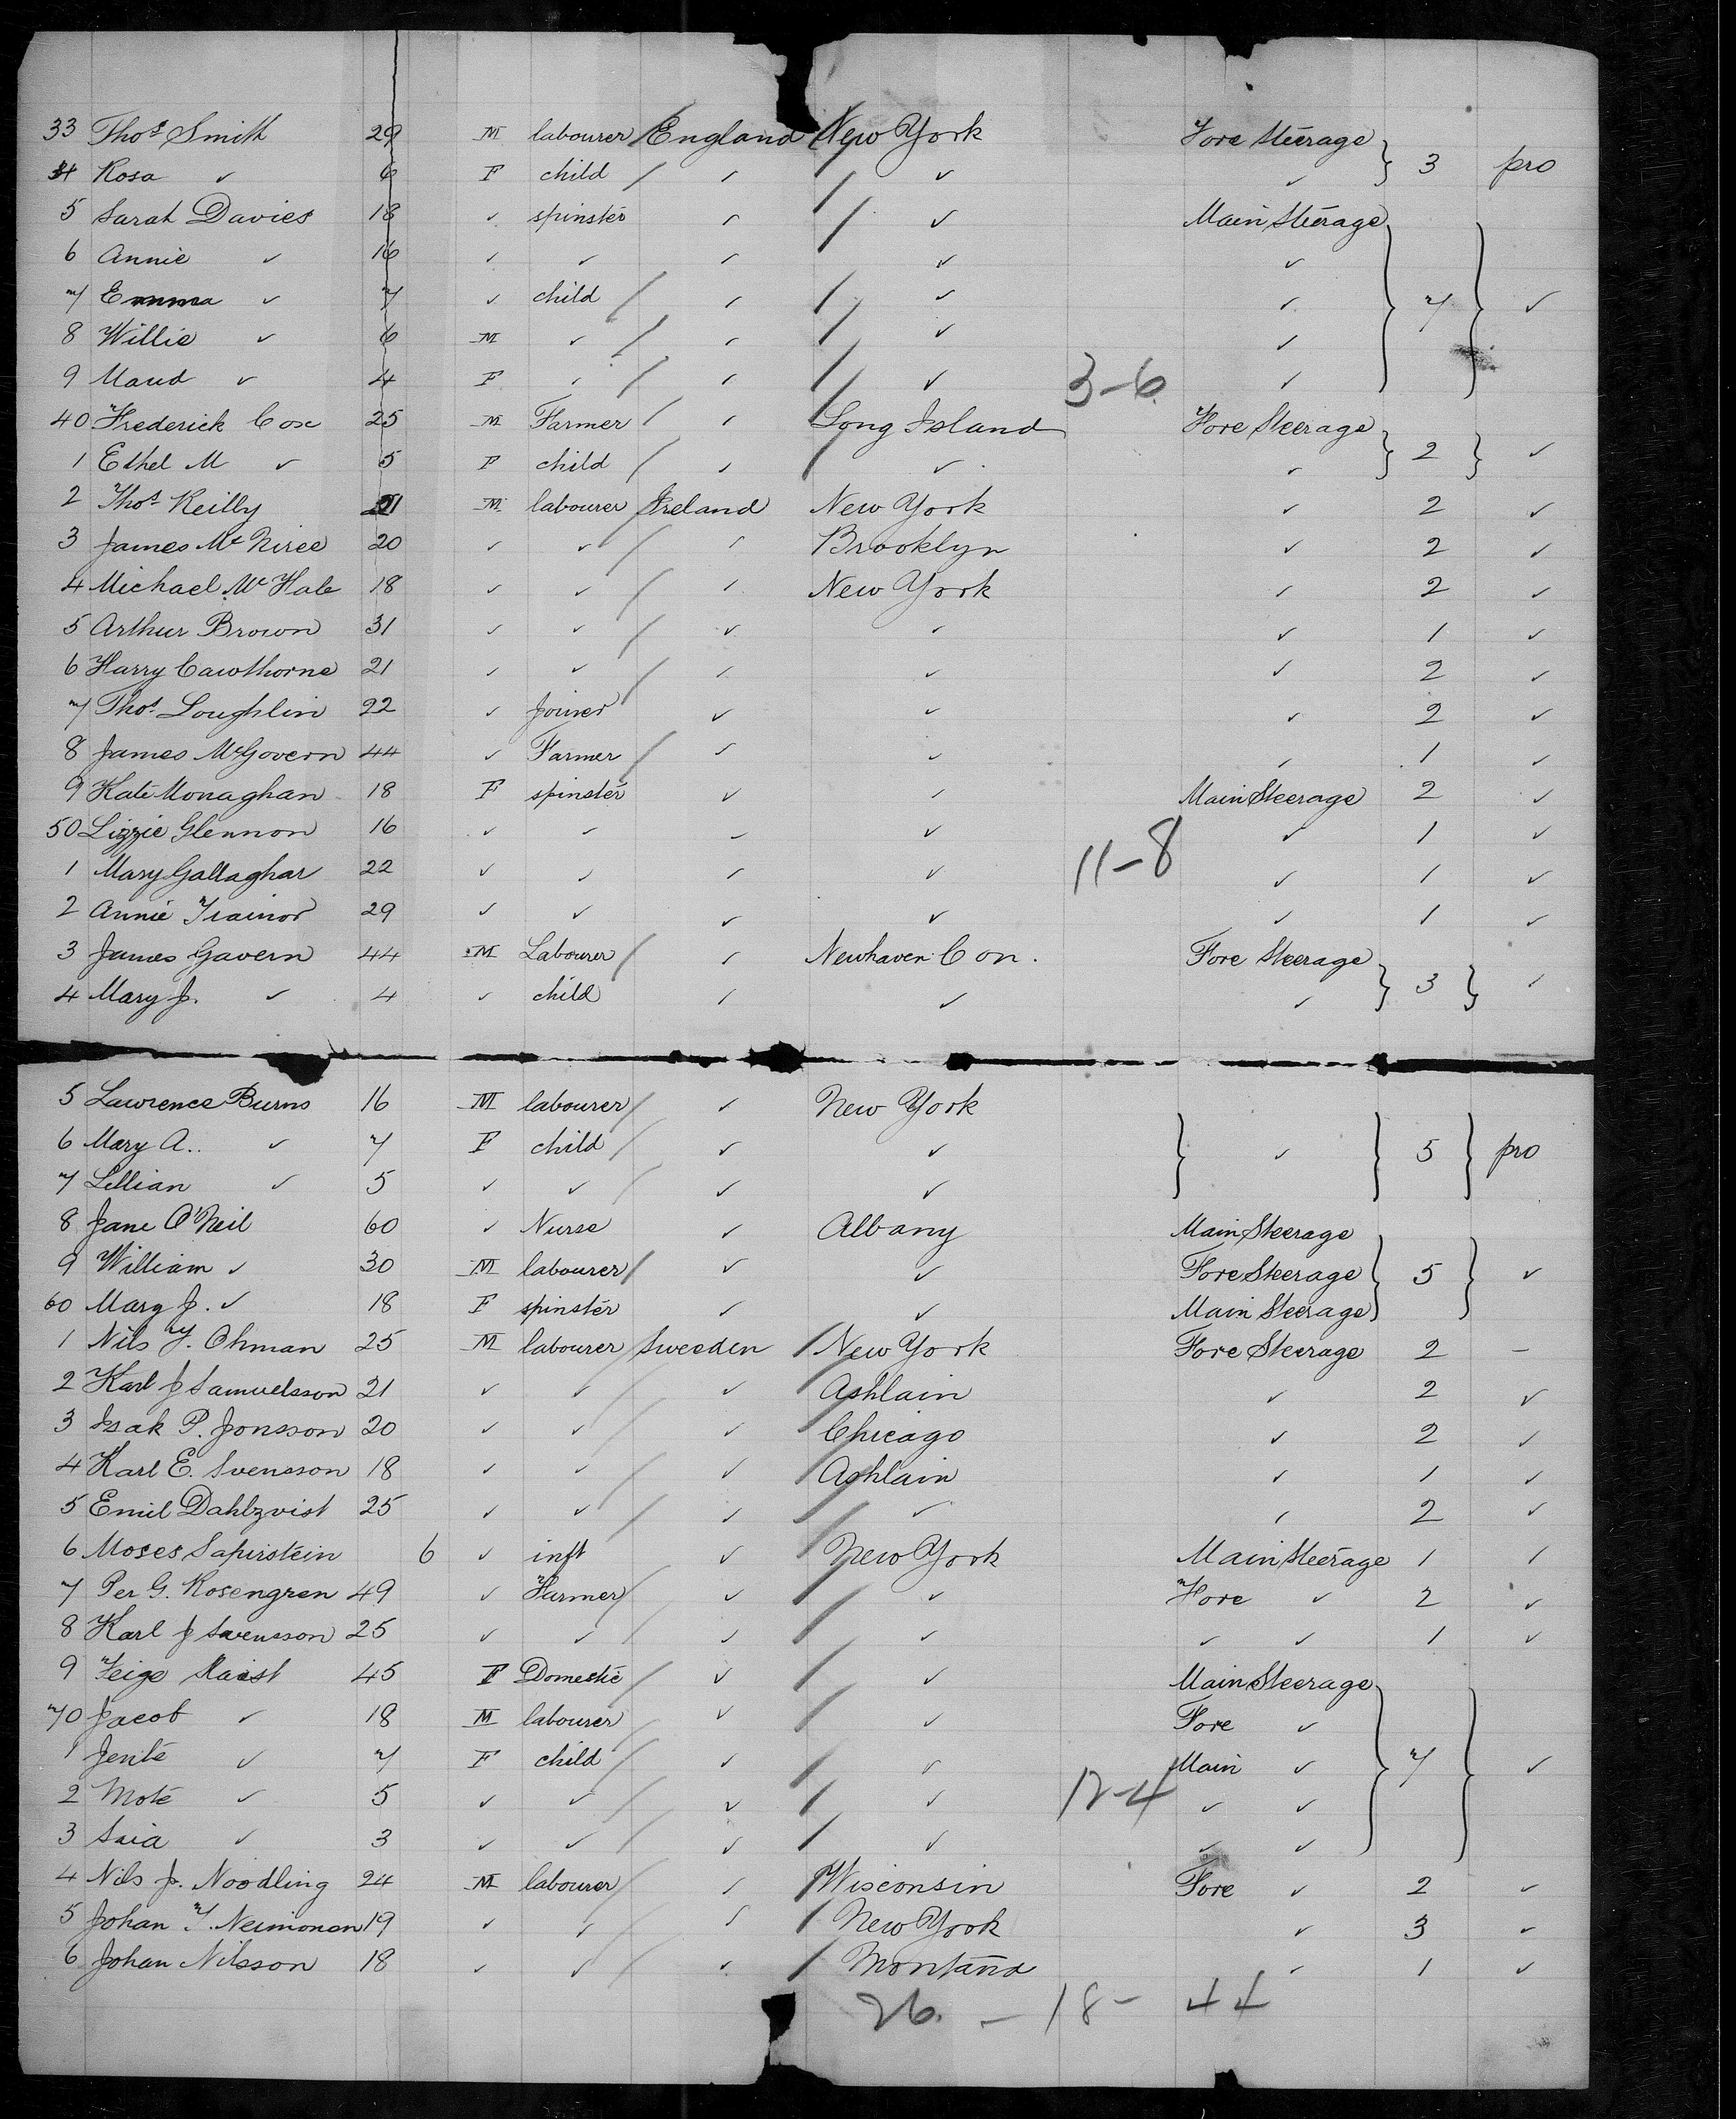 33 Thos Smith 29 M labourer England New York Fore Steerage
34 Rosa ✓ 6 F child ✓ ✓ ✓ } 3 pro
5 Sarah Davies 18 ✓ spinster ✓ ✓ Main Steerage
6 Annie ✓ 16 ✓ ✓ ✓ ✓ ✓
7 Emma ✓ 7 ✓ child ✓ ✓ ✓ } 7 } ✓
8 Willie ✓ 6 M ✓ ✓ ✓ ✓
9 Maud ✓ 4 F ✓ ✓ ✓ 3-6 ✓
40 Frederick Cox 25 M Farmer ✓ Long Island Fore Steerage
1 Ethel M ✓ 5 F child ✓ ✓ ✓ } 2 } ✓
2 Thos Reilly 21 M labourer Ireland New York ✓ 2 ✓
3 James Mc Niree 20 ✓ ✓ ✓ Brooklyn ✓ 2 ✓
4 Michael Mc Hale 18 ✓ ✓ ✓ New York ✓ 2 ✓
5 Arthur Brown 31 ✓ ✓ ✓ ✓ ✓ 1 ✓
6 Harry Cawthorne 21 ✓ ✓ ✓ ✓ ✓ 2 ✓
7 Thos Loughlin 22 ✓ Joiner ✓ ✓ ✓ 2 ✓
8 James McGovern 44 ✓ Farmer ✓ ✓ ✓ 1 ✓
9 Kate Monaghan 18 F spinster ✓ ✓ Main Steerage 2 ✓
50 Lizzie Glennon 16 ✓ ✓ ✓ ✓ ✓ 1 ✓
1 Mary Gallaghar 22 ✓ ✓ ✓ ✓ 11-8 ✓ 1 ✓
2 Annie Trainor 29 ✓ ✓ ✓ ✓ ✓ 1 ✓
3 James Gavern 44 M Labourer ✓ Newhaven Con. Fore Steerage
4 Mary J. ✓ 4 ✓ child ✓ ✓ ✓ } 3 } ✓
5 Lawrence Burns 16 M labourer ✓ New York
6 Mary A. ✓ 7 F child ✓ ✓ } ✓ } 5 } pro
7 Lillian ✓ 5 ✓ ✓ ✓ ✓
8 Jane O'Neil 60 ✓ Nurse ✓ Albany Main Steerage
9 William ✓ 30 M labourer ✓ ✓ Fore Steerage } 5 } ✓
60 Mary J. ✓ 18 F spinster ✓ ✓ Main Steerage
1 Nils J. Ohman 25 M labourer Sweeden New York Fore Steerage 2 –
2 Karl J Samuelsson 21 ✓ ✓ ✓ Ashlain ✓ 2 ✓
3 Isak P. Jonsson 20 ✓ ✓ ✓ Chicago ✓ 2 ✓
4 Karl E. Svensson 18 ✓ ✓ ✓ Ashlain ✓ 1 ✓
5 Emil Dahlzvist 25 ✓ ✓ ✓ ✓ ✓ 2 ✓
6 Moses Saperstein 6 ✓ inft ✓ New York Main Steerage 1 ✓
7 Per G. Rosengren 49 ✓ Farmer ✓ ✓ Fore ✓ 2 ✓
8 Karl J Svensson 25 ✓ ✓ ✓ ✓ ✓ ✓ 1 ✓
9 Feige 45 F Domestic ✓ ✓ Main Steerage
70 Jacob ✓ 18 M labourer ✓ ✓ Fore ✓
1 Jente ✓ 7 F child ✓ ✓ Main ✓ } 7 } ✓
2 Mote ✓ 5 ✓ ✓ ✓ ✓ 12-4 ✓ ✓
3 Saia ✓ 3 ✓ ✓ ✓ ✓ ✓ ✓
4 Nils J. Noodling 24 M labourer ✓ Wisconsin Fore ✓ 2 ✓
5 Johan T. Neimonen 19 ✓ ✓ ✓ New York ✓ 3 ✓
6 Johan Nilsson 18 ✓ ✓ ✓ Montana ✓ 1 ✓
26. – 18 – 44